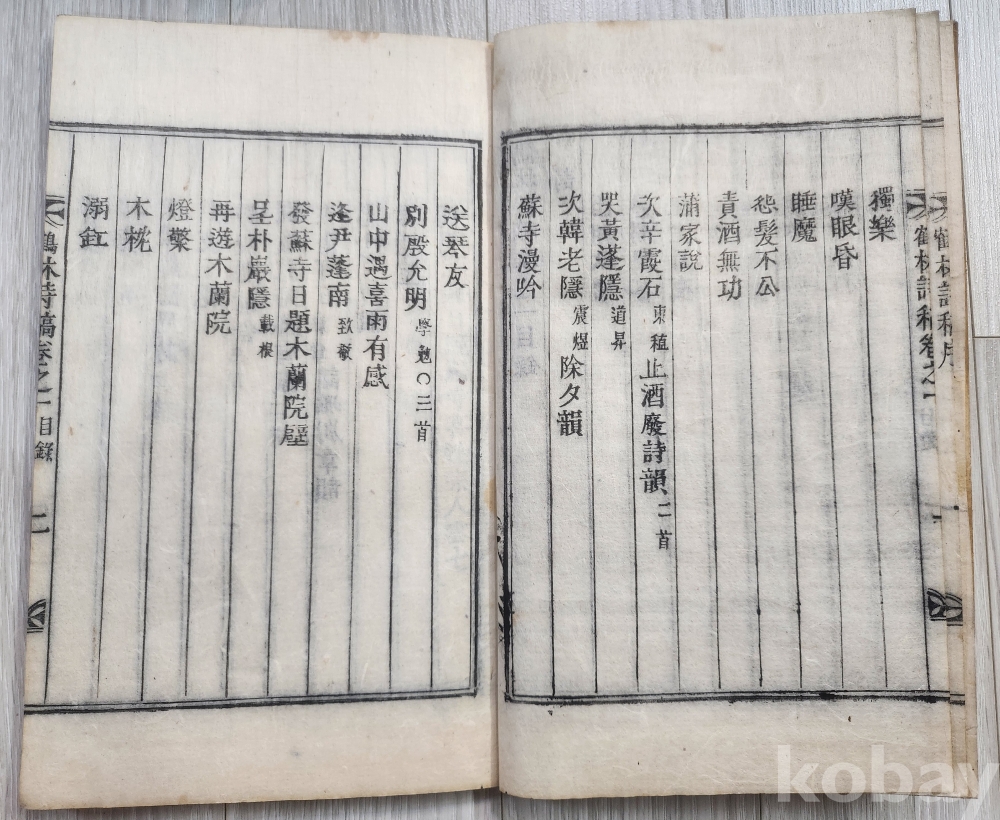 鶴林詩稿序
鶴林詩稿卷之一
一
獨樂
嘆眼昏
睡魔
愁髮不公
責酒無功
蒲家說
次辛霞石東稙止酒廢詩韻二首
哭黃蓬隱道昇
次韓老隱震煜除夕韻
蘇寺漫吟
送琴友
別殷允明學勉○三首
山中遇喜雨有感
逢尹蓬南致
發蘇寺日題木蘭院壁
呈朴巖隱載根
再遊木蘭院
燈檠
木枕
溺缸
鶴林詩稿卷之一目錄
二
kobay